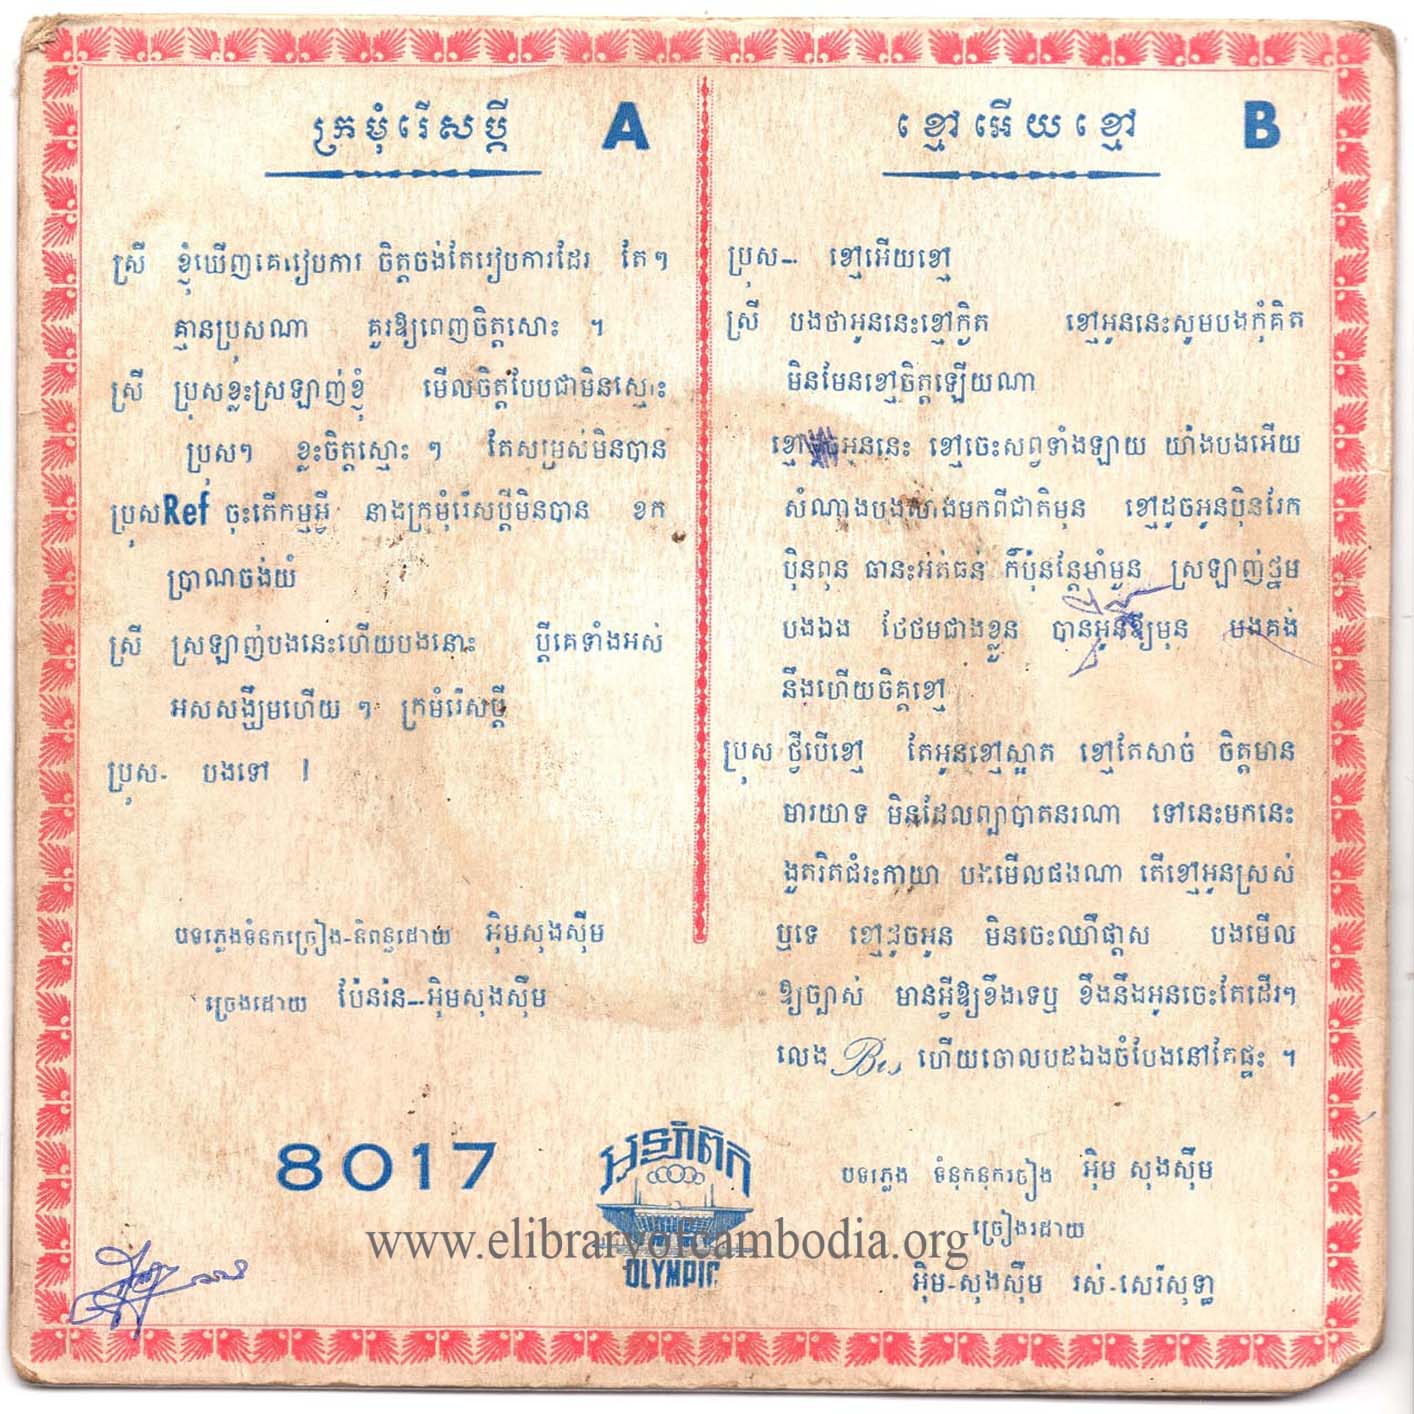 ក្រមុំរើសប្ដី A
ស្រី ខ្ញុំឃើញគេរៀបការ ចិត្តចង់តែរៀបការដែរ តែៗ
គ្មានប្រុសណា គួរឱ្យពេញចិត្តសោះ ។
ស្រី ប្រុសខ្លះស្រឡាញ់ខ្ញុំ មើលចិត្តបែបជាមិនស្មោះ
ប្រុសៗ ខ្លះចិត្តស្មោះ ៗ តែសម្រស់មិនបាន
ប្រុស Ref ចុះតើកម្មអ្វី នាងក្រមុំរើសប្ដីមិនបាន ខក
ប្រាណចង់យំ
ស្រី ស្រឡាញ់បងនេះហើយបងនោះ ប្ដីគេទាំងអស់
អសសង្ឃឹមហើយ ៗ ក្រមំរើសប្ដី
ប្រុស- បងទៅ |
បទភ្លេងទំនកច្រៀង-និពន្ធដោយ អ៊ិមសុងស៊ឹម
ច្រេងដោយ ប៉ែនរ៉ន-អ៊ិមសុងស៊ឹម
ខ្មៅអើយខ្មៅ B
ប្រុស-- ខ្មៅអើយខ្មៅ
ស្រី បងថាអូននេះខ្មៅក្ងិត ខ្មៅអូននេះសូមបងកុំគិត
មិនមែនខ្មៅចិត្តឡើយណា
ខ្មៅ អូននេះ ខ្មៅចេះសព្វទាំងឡាយ យ៉ាងបងអើយ
សំណាងបងសាងមកពីជាតិមុន ខ្មៅដូចអូនប៉ិនរែក
ប៉ិនពុន ធានះអត់ធន់ ក៏ប៉ុនន្តែមាំមួន ស្រឡាញ់ថ្នម
បងឯង ថែថមជាងខ្លួន បានអូនឱ្យមុន មងគង់
នឹងហើយចិត្តខ្មៅ
ប្រុស ថ្វីបើខ្មៅ តែអូនខ្មៅស្អាត ខ្មៅតែសាច់ ចិត្តមាន
មារយាទ មិនដែលព្យាបាតនរណា ទៅនេះមកនេះ
ងួតរិតជំរះកាយា បងមើលផងណា តើខ្មៅអូនស្រស់
ឬទេ ខ្មៅដូចអូន មិនចេះឈឺផ្ដាស បងមើល
ឱ្យច្បាស់ មានអ្វីឱ្យខឹងទេឬ ខឹងនឹងអូនចេះតែដើរៗ
លេង Bis ហើយចោលបដងឯងចំបែងនៅតែផ្ទះ ។
បទភ្លេង ទំនុកនុករចៀង អ៊ិម សុងស៊ឹម
ច្រៀងរដោយ
អ៊ិម-សុងស៊ឹម រស់-សេរីសុទ្ធា
8017
អូឡាំពិក
OLYMPIC
www.elibraryofcambodia.org